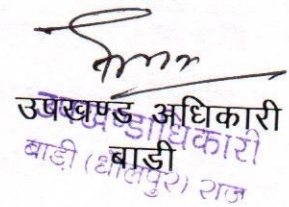 उपखण्ड अधिकारी
उपखण्डाधिकारी
बाडी
बाडी (धौलपुर) राज